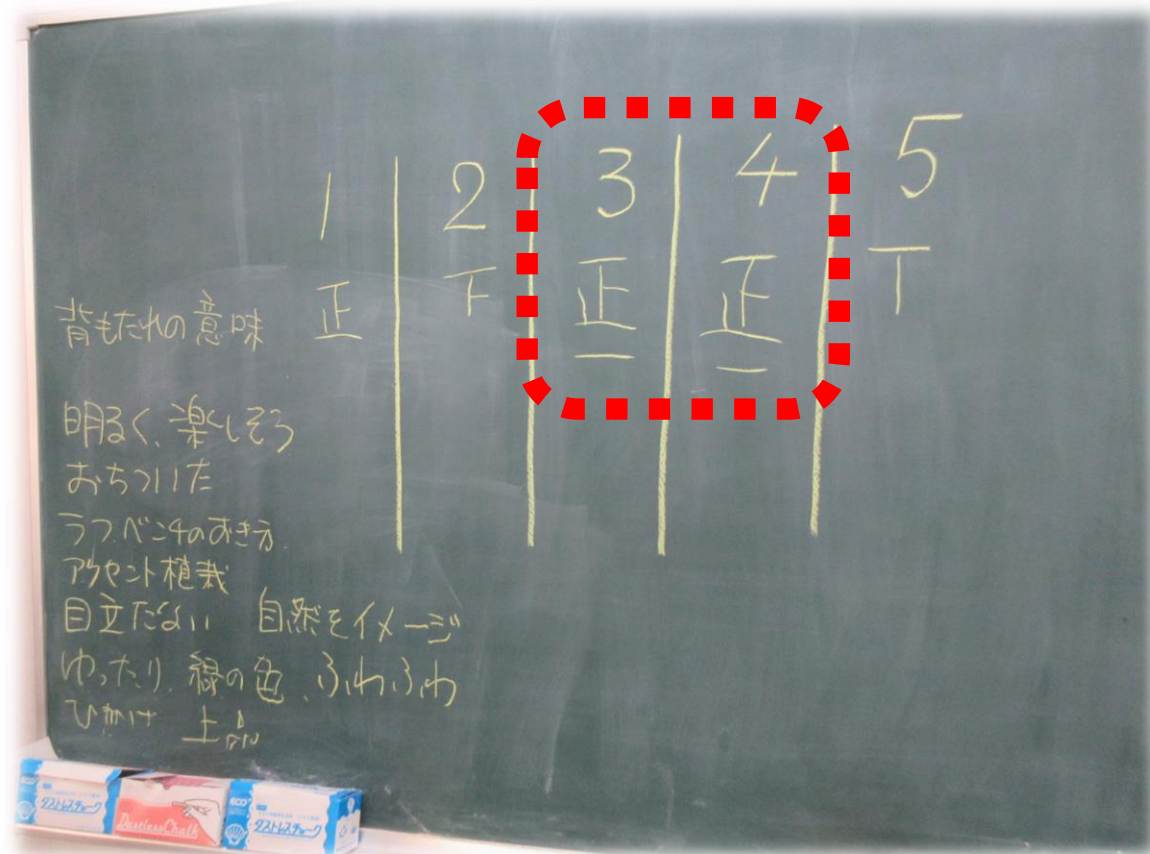 1 2 3 4 5
正 下 正一 正一 T
背もたれの意味
明るく、楽しそう
おちついた
ラフ、ベンチのおき方
アクセント植栽
目立たない 自然をイメージ
ゆったり、緑の色、ふわふわ
ひかげ 上品
ECO ダストレスチョーク
DustlessChalk
ECO ダストレスチョーク